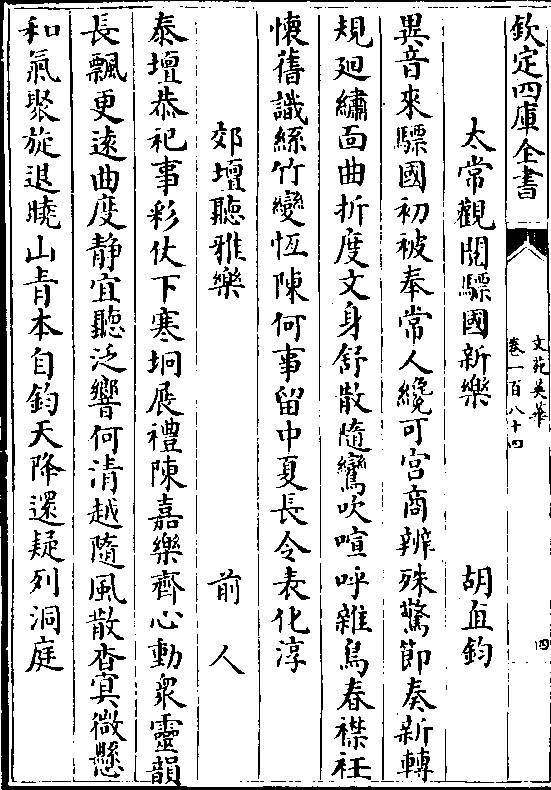 欽定四庫全書
文苑英華
卷一百八十四
四
太常觀閱驃國新樂　胡直鈞
異音來驃國初被奉常人纔可宮商辨殊驚節奏新轉
規迴繡面曲折度文身舒散隨鸞吹喧呼雜鳥春襟衽
懷舊識絲竹變恆陳何事留中夏長令表化淳
郊壇聽雅樂　前人
泰壇恭祀事彩仗下寒坰展禮陳嘉樂齊心動衆靈韻
長飄更遠曲度靜宜聽泛響何清越隨風散杳冥微懸
和氣聚旋退曉山青本自鈞天降還疑列洞庭